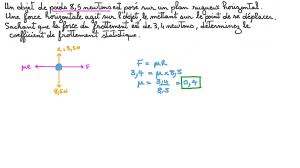 Un objet de poids 8,5 newtons est posé sur un plan rugueux horizontal.
Une force horizontale agit sur l'objet le mettant sur le point de se déplacer.
Sachant que la force du frottement est de 3,4 newtons, déterminez le
coefficient de frottement statistique.
R = 8,5N
μR
F
8,5N
F = μR
3,4 = μ × 8,5
μ = 3,4 / 8,5 = 0,4